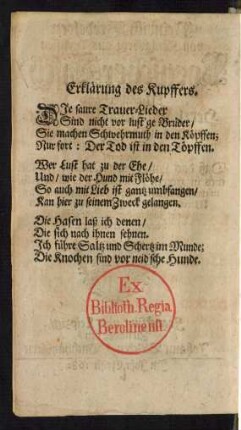 Erklärung des Kupffers.
DIe saure Trauer-Lieder
Sind nicht vor lust'ge Brüder/
Sie machen Schwehrmuth in den Köpffen;
Nur fort: Der Tod ist in den Töpffen.
Wer Lust hat zu der Ehe/
Und/ wie der Hund mit Flöhe/
So auch mit Lieb ist gantz umbfangen/
Kan hier zu seinem Zweck gelangen.
Die Hasen laß ich denen/
Die sich nach ihnen sehnen.
Ich führe Saltz und Schertz im Munde;
Die Knochen sind vor neid'sche Hunde.
Ex
Biblioth. Regia
Berolinensi.